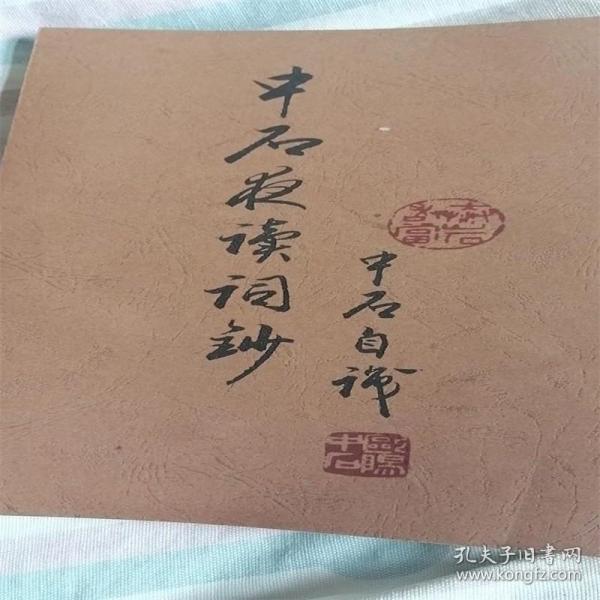 中石夜读词鈔
中石自识
歐陽中石
孔夫子旧書网
www.kongfz.com